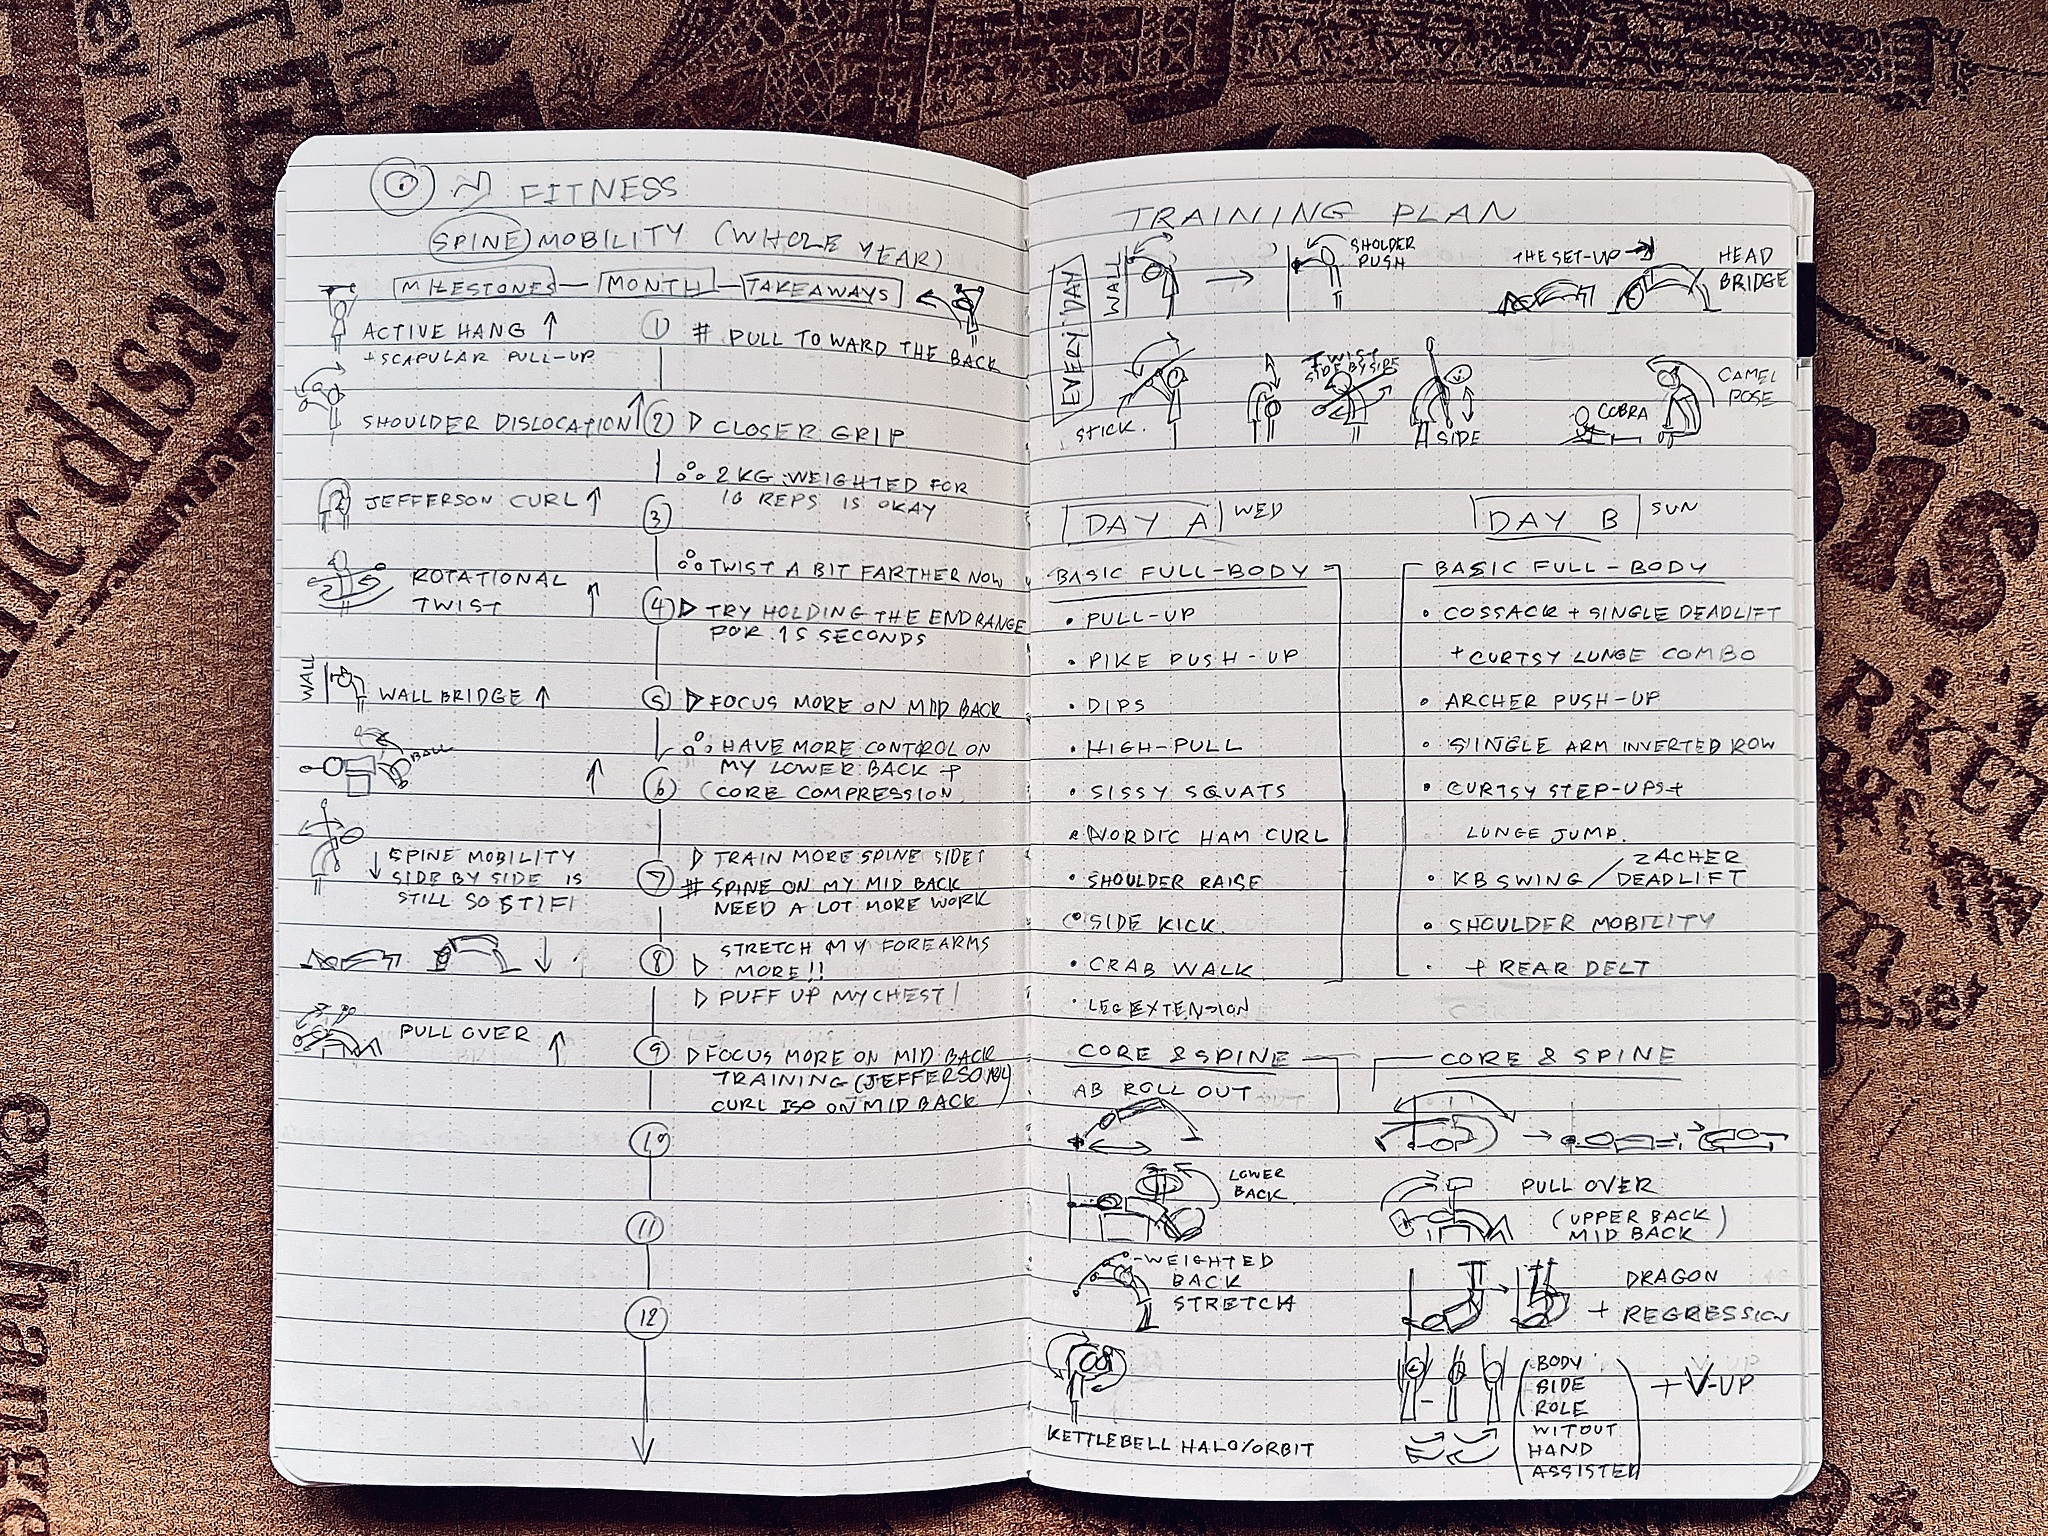 FITNESS
SPINE MOBILITY (WHOLE YEAR)
MILESTONES — MONTH — TAKEAWAYS
ACTIVE HANG ↑
+ SCAPULAR PULL-UP
1 # PULL TOWARD THE BACK
SHOULDER DISLOCATION ↑
2 ▷ CLOSER GRIP
2 KG WEIGHTED FOR
10 REPS IS OKAY
JEFFERSON CURL ↑
3
TWIST A BIT FARTHER NOW
ROTATIONAL
TWIST ↑
4 ▷ TRY HOLDING THE END RANGE
FOR 15 SECONDS
WALL
WALL BRIDGE ↑
5 ▷ FOCUS MORE ON MID BACK
BALL
↑
HAVE MORE CONTROL ON
MY LOWER BACK +
6 (CORE COMPRESSION
↓ SPINE MOBILITY
SIDE BY SIDE IS
STILL SO STIFF
▷ TRAIN MORE SPINE SIDE
7 # SPINE ON MY MID BACK
NEED A LOT MORE WORK
↓
8 ▷ STRETCH MY FOREARMS
MORE!!
▷ PUFF UP MY CHEST!
PULL OVER ↑
9 ▷ FOCUS MORE ON MID BACK
TRAINING (JEFFERSON
CURL ISO ON MID BACK)
10
11
12
TRAINING PLAN
EVERY DAY
WALL
SHOLDER
PUSH
THE SET-UP →
HEAD
BRIDGE
STICK
TWIST
SIDE BY SIDE
SIDE
COBRA
CAMEL
POSE
DAY A WED
BASIC FULL-BODY
• PULL-UP
• PIKE PUSH-UP
• DIPS
• HIGH-PULL
• SISSY SQUATS
• NORDIC HAM CURL
• SHOULDER RAISE
• SIDE KICK.
• CRAB WALK
• LEG EXTENSION
CORE & SPINE
AB ROLL OUT
LOWER
BACK
WEIGHTED
BACK
STRETCH
KETTLEBELL HALO/ORBIT
DAY B SUN
BASIC FULL-BODY
• COSSACK + SINGLE DEADLIFT
+ CURTSY LUNGE COMBO
• ARCHER PUSH-UP
• SINGLE ARM INVERTED ROW
• CURTSY STEP-UPS +
LUNGE JUMP.
• KB SWING / ZACHER
DEADLIFT
• SHOULDER MOBILITY
+ REAR DELT
CORE & SPINE
PULL OVER
(UPPER BACK)
MID BACK
DRAGON
+ REGRESSION
(BODY
SIDE
ROLE
WITOUT
HAND
ASSISTED)
+ V-UP
indic
disa
exchange
asset